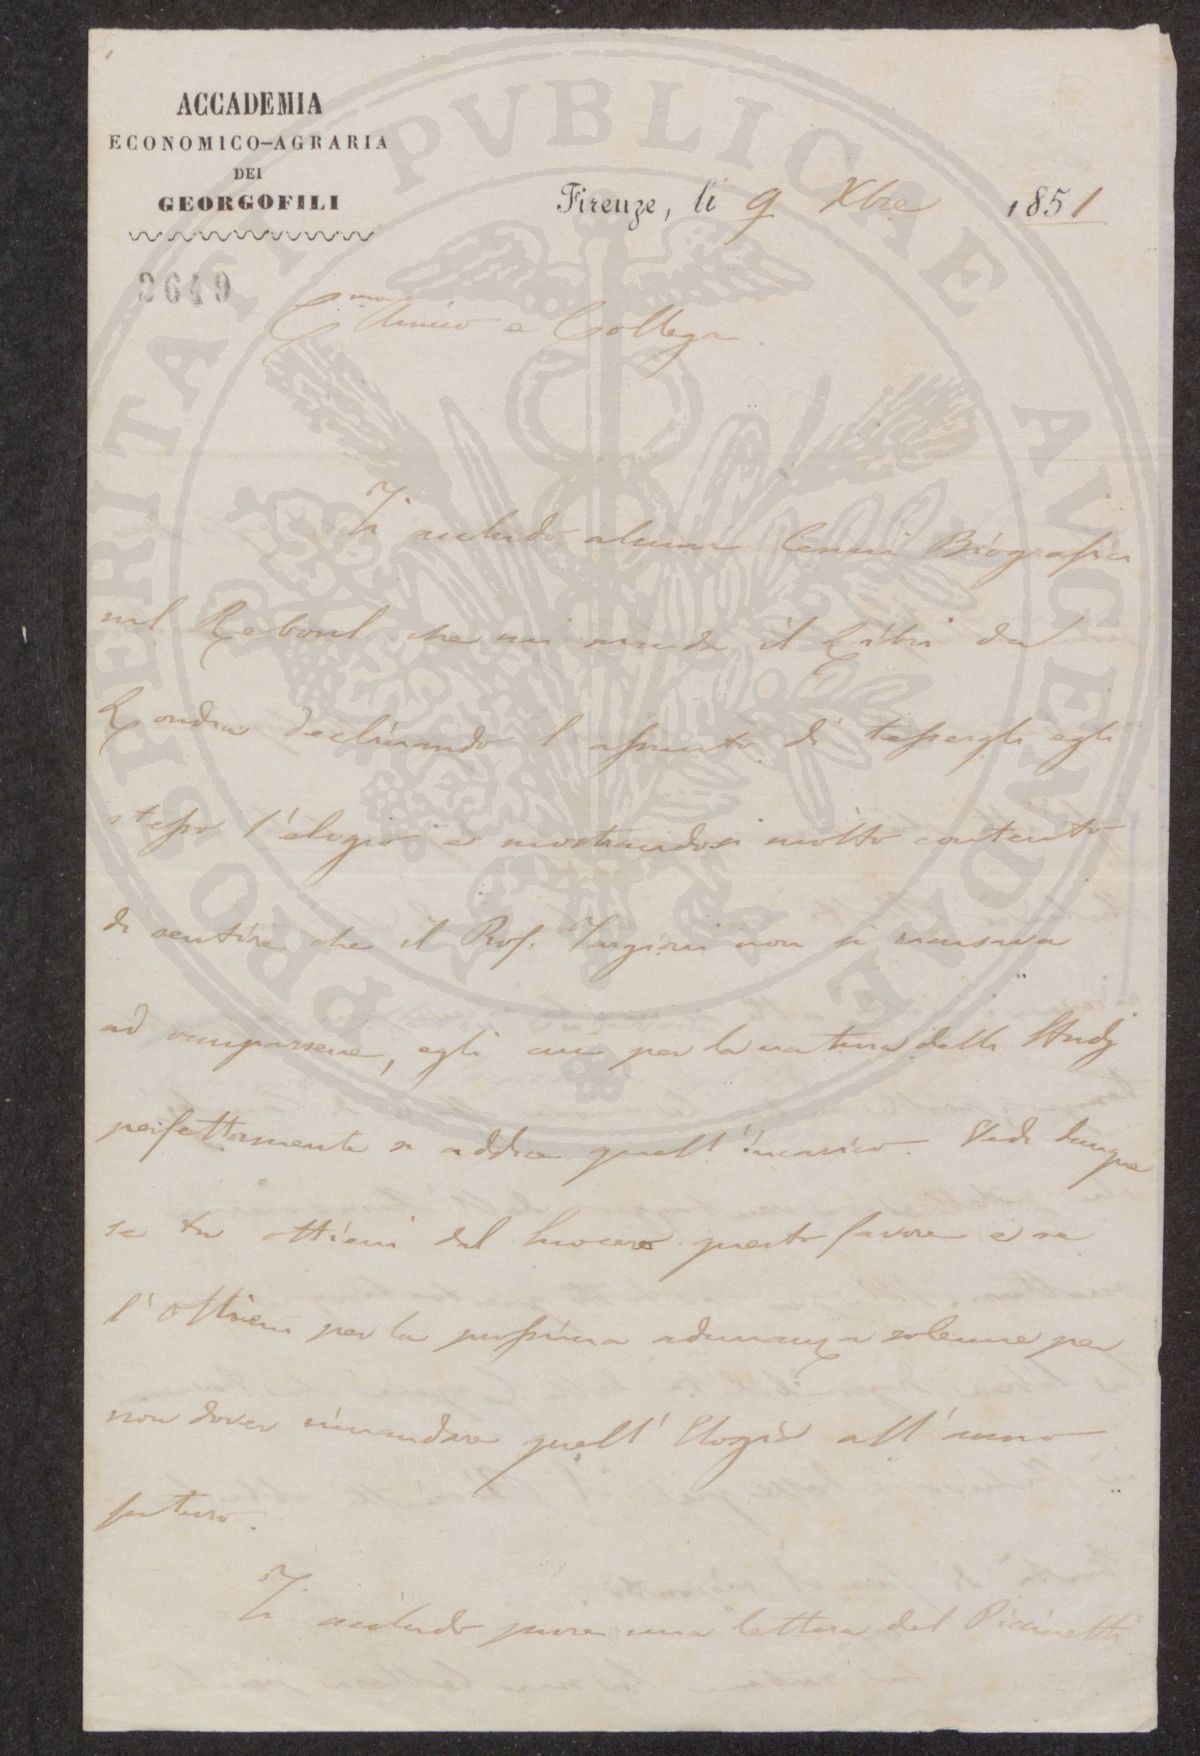 ACCADEMIA
ECONOMICO-AGRARIA
DEI
GEORGOFILI
Firenze, li 9 Xbre 1851
2649
C.mo Amico e Collega
Ti acludo alcuni Cenni Biografici
sul Reboul che mi manda il Libri da
Londra declinando l'assunto di tesserglі egli
stesso l'elogio e mostrandosi molto contento
di sentire che il Prof. Targioni non si ricusava
ad occuparsene, egli cui per la natura delli Studj
perfettamente si addice quell'incarico. Vedi dunque
se tu ottieni dal Suocero questo favore e se
l'ottieni per la prossima adunanza solenne per
non dover rimandare quell'Elogio all'anno
futuro.
Ti acludo pure una lettera del Piccinetti
PROSPERITATI PVBLICAE AVGENDAE